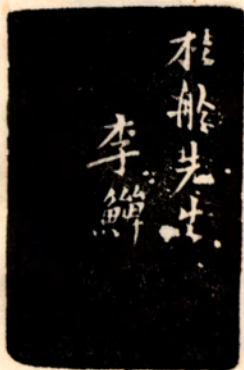 桂舲先生
李鱓